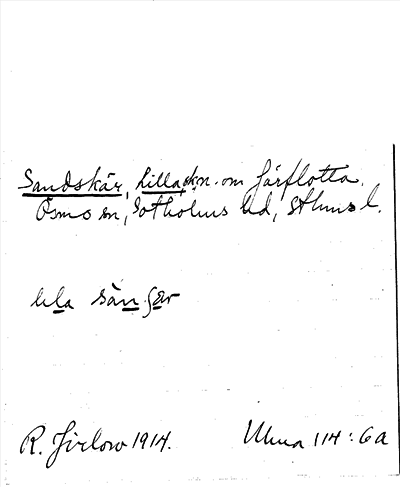 Sandskär, Lilla, skn. om Järflotta.
Ösmo sn, Sotholms hd, Sthms l.
lila sàn gar
R. Jirlow 1914. Ulma 114:6a